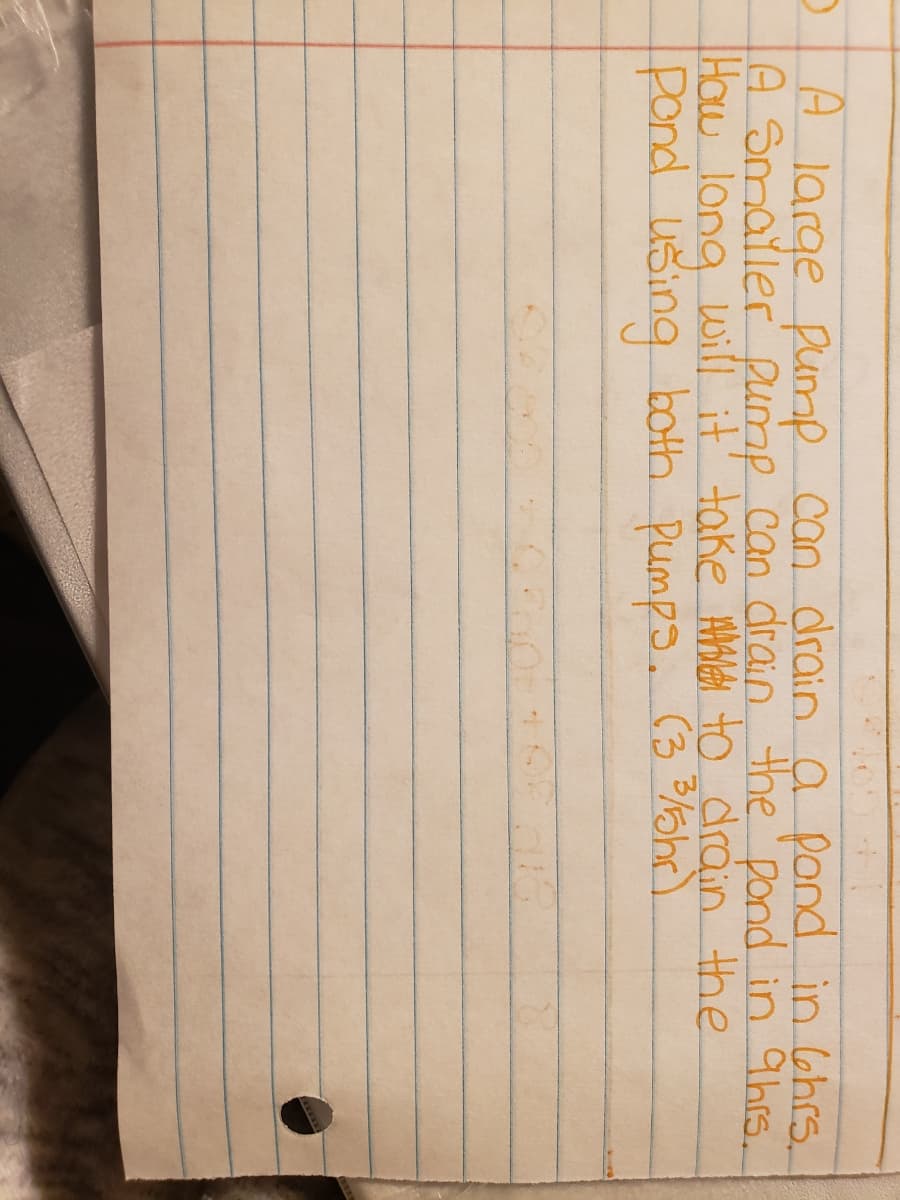 A large pump can drain a pond in 6hrs.
A smaller pump can drain the pond in 9hrs.
How long will it take to drain the
pond using both pumps. (3 3/5hr)